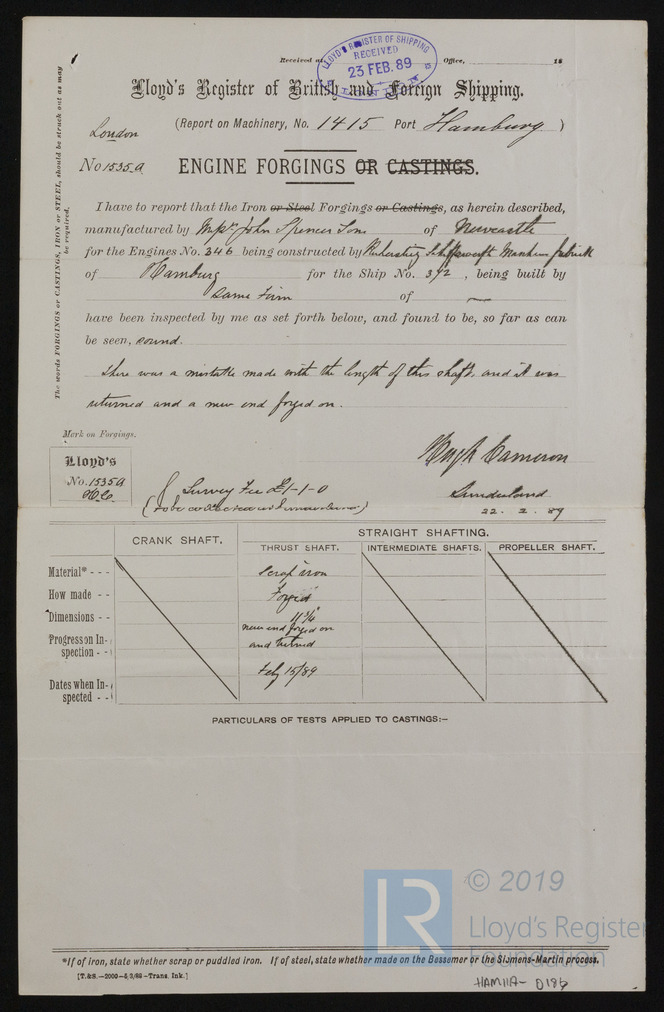 Received at Office, 18
LLOYD'S REGISTER OF SHIPPING
RECEIVED
23 FEB. 89
Lloyd's Register of British and Foreign Shipping.
London
(Report on Machinery, No. 1415 Port Hamburg)
No 1535A
ENGINE FORGINGS OR CASTINGS.
The words FORGINGS or CASTINGS, IRON or STEEL, should be struck out as may be required.
I have to report that the Iron or Steel Forgings or Castings, as herein described,
manufactured by Messrs John Spencer Sons of Newcastle
for the Engines No. 346 being constructed by
of Hamburg for the Ship No. 372, being built by
Same Firm of —
have been inspected by me as set forth below, and found to be, so far as can
be seen, sound.
There was a mistake made with the length of this shaft and it was
returned and a new end forged on.
Mark on Forgings.
Lloyd's
No. 1535A
H.C.
Hugh Cameron
Survey Fee £1-1-0
(to be collected
Sunderland
22. 2. 89
CRANK SHAFT.
STRAIGHT SHAFTING.
THRUST SHAFT. INTERMEDIATE SHAFTS. PROPELLER SHAFT.
Material* - - - Scrap iron
How made - - Forged
Dimensions - - 11 3/4"
Progress on Inspection - - new end forged on
and turned
Dates when Inspected - - Feby 15/89
PARTICULARS OF TESTS APPLIED TO CASTINGS:–
LR
© 2019
Lloyd's Register
Foundation
*If of iron, state whether scrap or puddled iron. If of steel, state whether made on the Bessemer or the Siemens-Martin process.
[T.&S.—2000—5/3/88—Trans. Ink.]
HAM11A- 0186